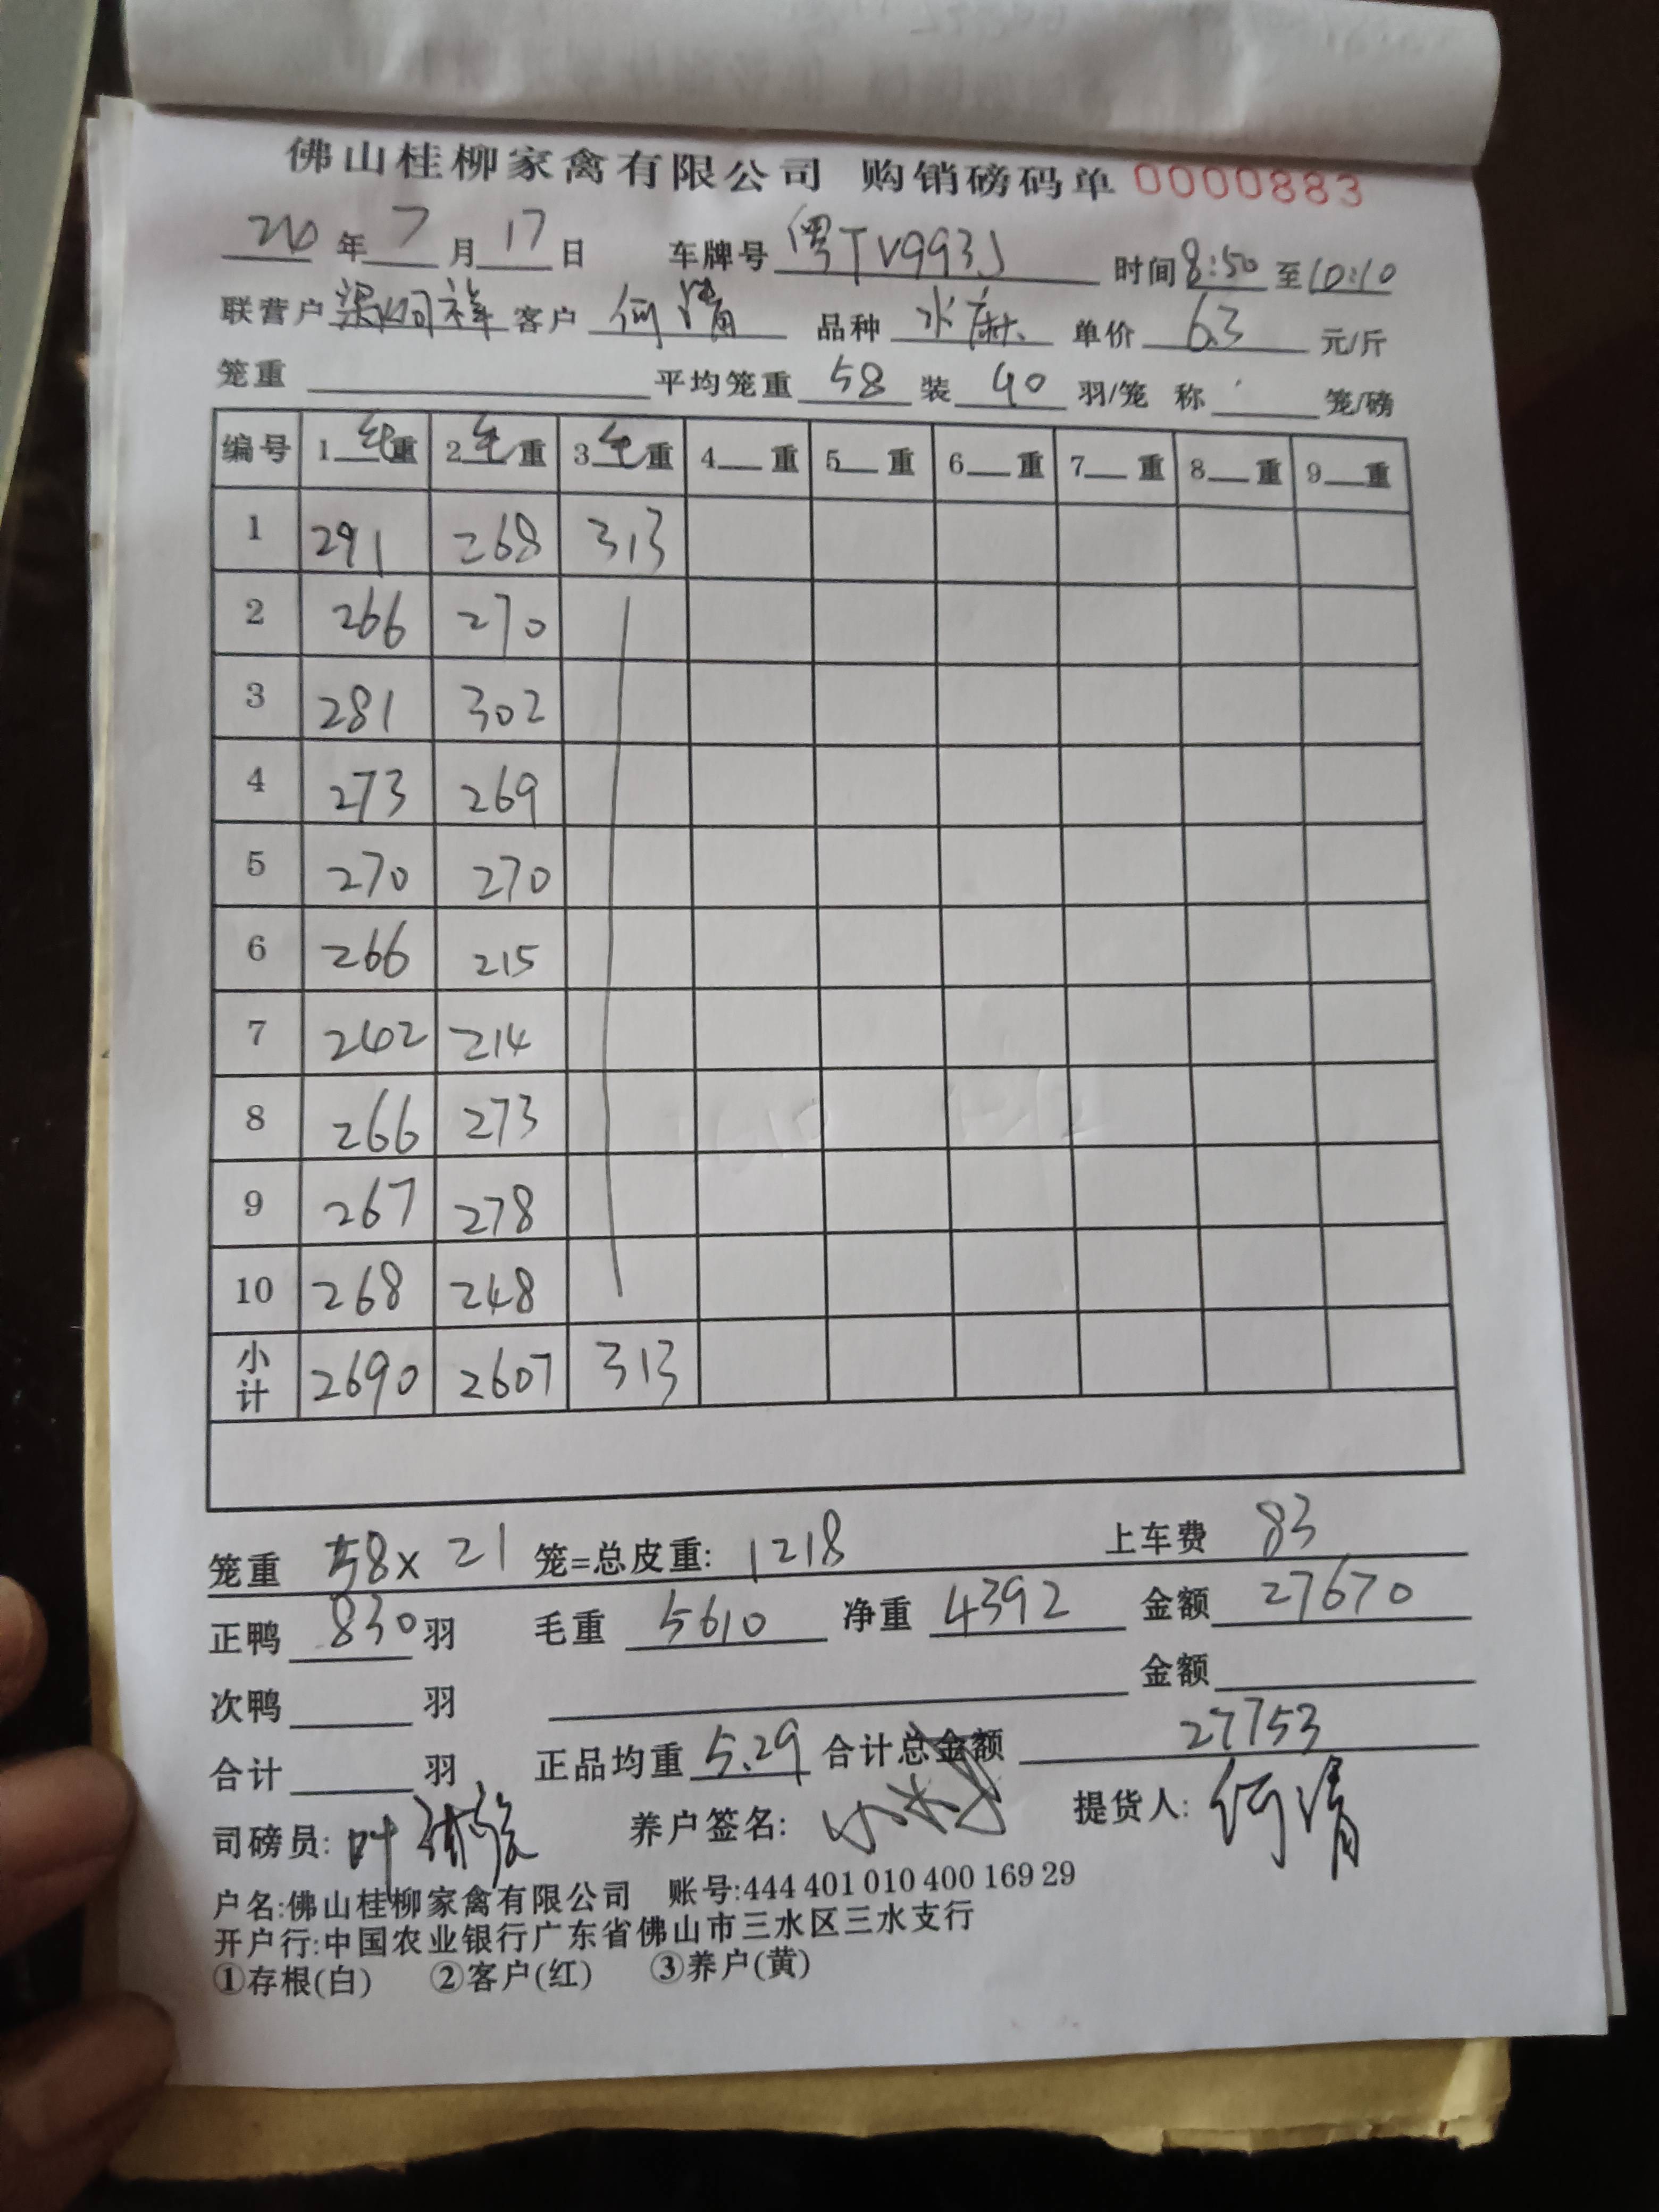 佛山桂柳家禽有限公司 购销磅码单 0000883
年 7 月 17 日 车牌号 粤TV993J 时间 8:50 至 10:10
联营户 客户 何清 品种 水麻 单价 6.3 元/斤
笼重 平均笼重 58 装 40 羽/笼 称 笼/磅
编号 1 毛 重 2 毛 重 3 毛 重 4 重 5 重 6 重 7 重 8 重 9 重
1 291 268 313
2 266 270
3 281 302
4 273 269
5 270 270
6 266 215
7 242 214
8 266 273
9 267 278
10 268 248
小计 2690 2607 313
笼重 58 x 21 笼=总皮重: 1218 上车费 83
正鸭 830 羽 毛重 5610 净重 4392 金额 27670
次鸭 羽 金额
合计 羽 正品均重 5.29 合计总金额 27753
司磅员: 叶 养户签名: 提货人: 何清
户名:佛山桂柳家禽有限公司 账号:444 401 010 400 169 29
开户行:中国农业银行广东省佛山市三水区三水支行
①存根(白) ②客户(红) ③养户(黄)